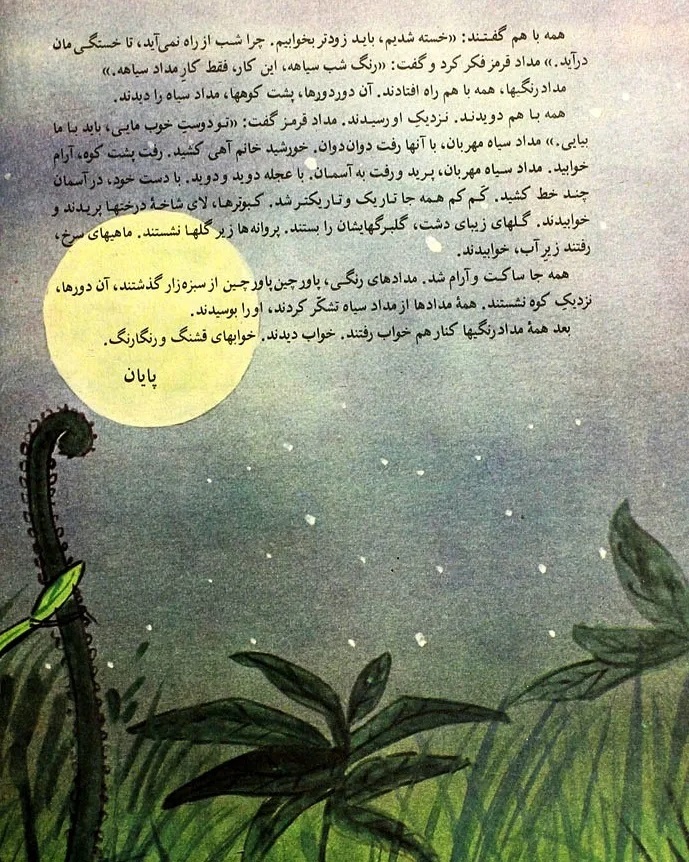 همه با هم گفتند: «خسته شدیم، باید زودتر بخوابیم. چرا شب از راه نمی‌آید، تا خستگی مان
درآید.» مداد قرمز فکر کرد و گفت: «رنگ شب سیاهه، این کار، فقط کارِ مداد سیاهه.»
مدادرنگیها، همه با هم راه افتادند. آن دوردورها، پشت کوهها، مداد سیاه را دیدند.
همه با هم دویدند. نزدیکِ او رسیدند. مداد قرمز گفت: «تو دوستِ خوب مایی، باید با ما
بیایی.» مداد سیاه مهربان، با آنها رفت دوان‌دوان. خورشید خانم آهی کشید. رفت پشت کوه، آرام
خوابید. مداد سیاه مهربان، پرید و رفت به آسمان. با عجله دوید و دوید. با دست خود، در آسمان
چند خط کشید. کَم کم همه جا تاریک و تاریکتر شد. کبوترها، لای شاخهٔ درختها پریدند و
خوابیدند. گلهای زیبای دشت، گلبرگهایشان را بستند. پروانه‌ها زیر گلها نشستند. ماهیهای سرخ،
رفتند زیرِ آب، خوابیدند.
همه جا ساکت و آرام شد. مدادهای رنگی، پاورچین‌پاورچین از سبزه‌زار گذشتند، آن دورها،
نزدیکِ کوه نشستند. همهٔ مدادها از مداد سیاه تشکّر کردند، او را بوسیدند.
بعد همهٔ مدادرنگیها کنار هم خواب رفتند. خواب دیدند. خوابهای قشنگ و رنگارنگ.
پایان